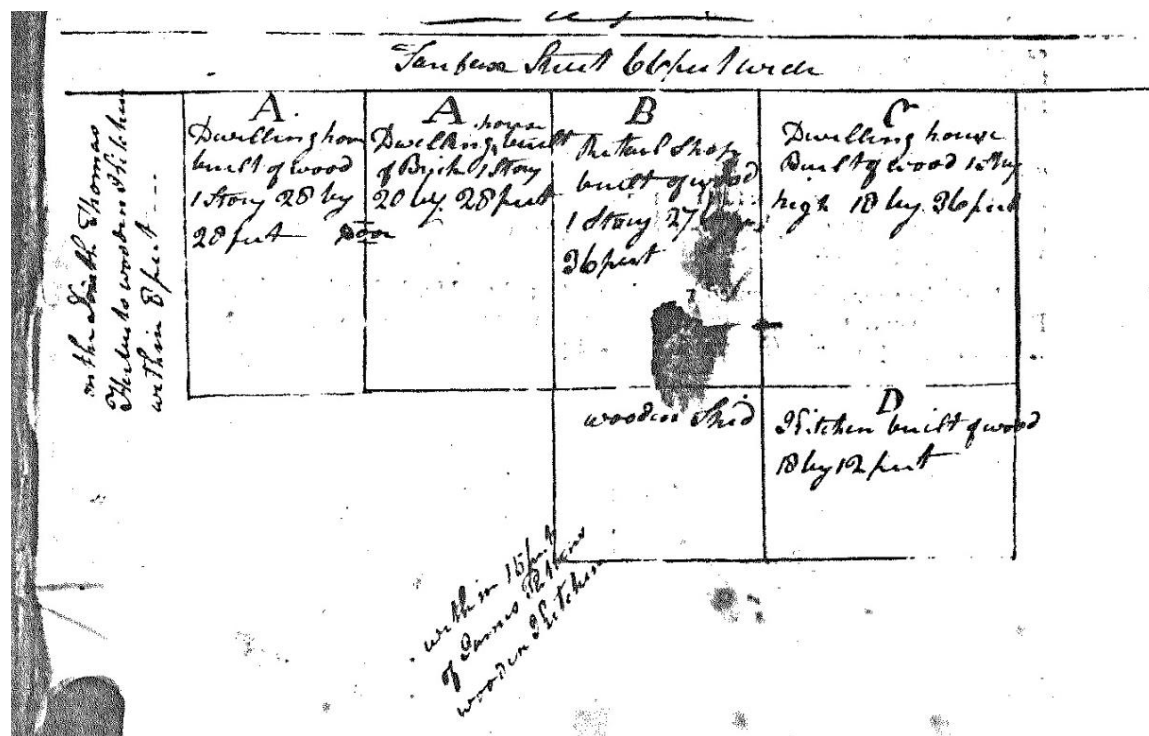 Street 66 feet wide
on the South Thomas
wooden Kitchen
within 8 feet
A.
Dwelling hous
built of wood
1 Story 28 by
28 feet
Door
A
house
Dwelling built
of Brick 1 Story
20 by 28 feet
B
Retail Shop
built of wood
1 Story 27
36 feet
C
Dwelling house
Built of wood 1 Story
high 18 by 36 feet
wooden Shed
D
Kitchen built of wood
18 by 12 feet
within 15 feet
of James
wooden Kitchen